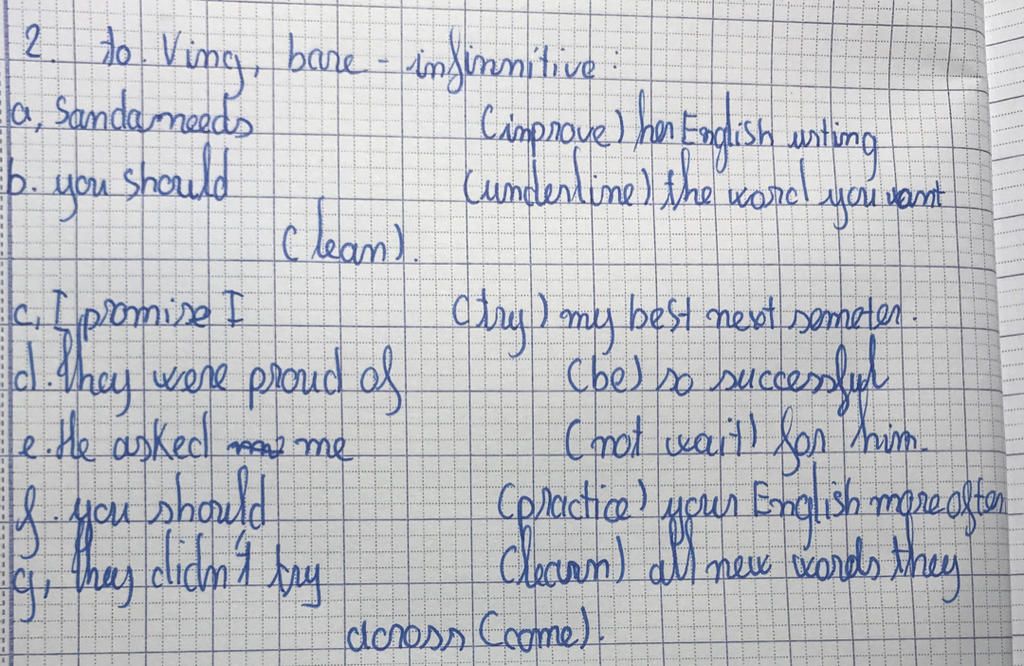 2. to Ving, bare - infinnitive :
a, Sanda needs (improve) her English writing
b. you should (underline) the word you want
(lean).
c, I promise I (try) my best next semeter.
d. They were proud of (be) so successful
e. He asked me (not wait) for him.
f. you should (practice) your English more often
g, they didn't try (learn) all new words they
across (come).